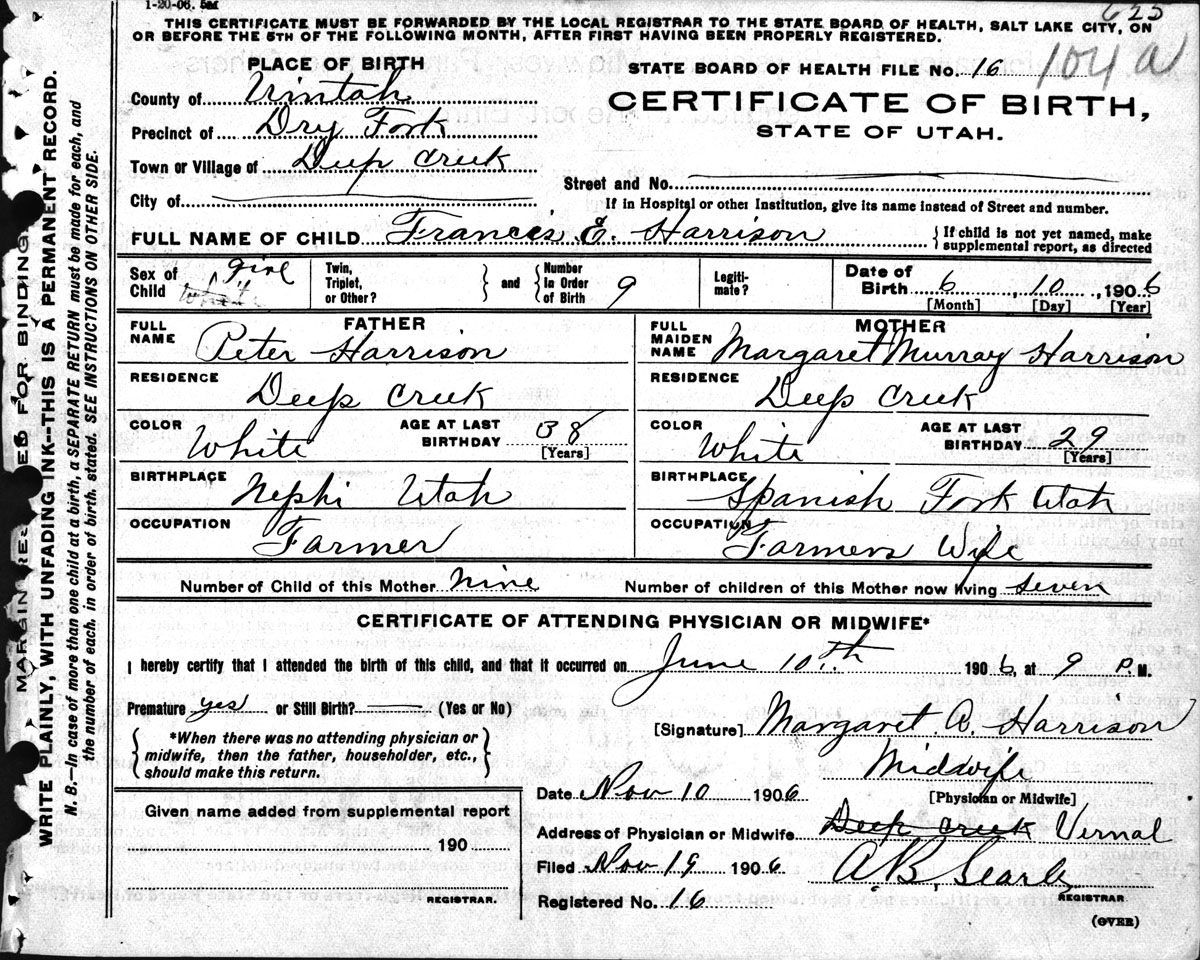 1-20-06. 5m
625
THIS CERTIFICATE MUST BE FORWARDED BY THE LOCAL REGISTRAR TO THE STATE BOARD OF HEALTH, SALT LAKE CITY, ON
OR BEFORE THE 5TH OF THE FOLLOWING MONTH, AFTER FIRST HAVING BEEN PROPERLY REGISTERED.
PLACE OF BIRTH
County of Uintah
Precinct of Dry Fork
Town or Village of Deep Creek
City of
STATE BOARD OF HEALTH FILE No. 16 104 a
CERTIFICATE OF BIRTH,
STATE OF UTAH.
Street and No.
If in Hospital or other Institution, give its name instead of Street and number.
FULL NAME OF CHILD Francis E. Harrison
If child is not yet named, make
supplemental report, as directed
Sex of Child girl White
Twin, Triplet, or Other?
and
Number In Order of Birth 9
Legiti-mate?
Date of Birth 6, 10, 1906
[Month] [Day] [Year]
FATHER
FULL NAME Peter Harrison
RESIDENCE Deep Creek
COLOR White
AGE AT LAST BIRTHDAY 38
[Years]
BIRTHPLACE Nephi Utah
OCCUPATION Farmer
MOTHER
FULL MAIDEN NAME Margaret Murray Harrison
RESIDENCE Deep Creek
COLOR White
AGE AT LAST BIRTHDAY 29
[Years]
BIRTHPLACE Spanish Fork Utah
OCCUPATION Farmers Wife
Number of Child of this Mother Nine
Number of children of this Mother now living seven
CERTIFICATE OF ATTENDING PHYSICIAN OR MIDWIFE*
I hereby certify that I attended the birth of this child, and that it occurred on June 10th 1906, at 9 P.M.
Premature yes or Still Birth? (Yes or No)
*When there was no attending physician or
midwife, then the father, householder, etc.,
should make this return.
[Signature] Margaret A. Harrison
Midwife
[Physician or Midwife]
Date Nov 10 1906
Address of Physician or Midwife Deep Creek Vernal
Filed Nov 19 1906 A.B. Searle
REGISTRAR
Registered No. 16
(OVER)
Given name added from supplemental report
190
REGISTRAR.
MARGIN RESERVED FOR BINDING
WRITE PLAINLY, WITH UNFADING INK--THIS IS A PERMANENT RECORD.
N. B.--In case of more than one child at a birth, a SEPARATE RETURN must be made for each, and
the number of each, in order of birth, stated. SEE INSTRUCTIONS ON OTHER SIDE.